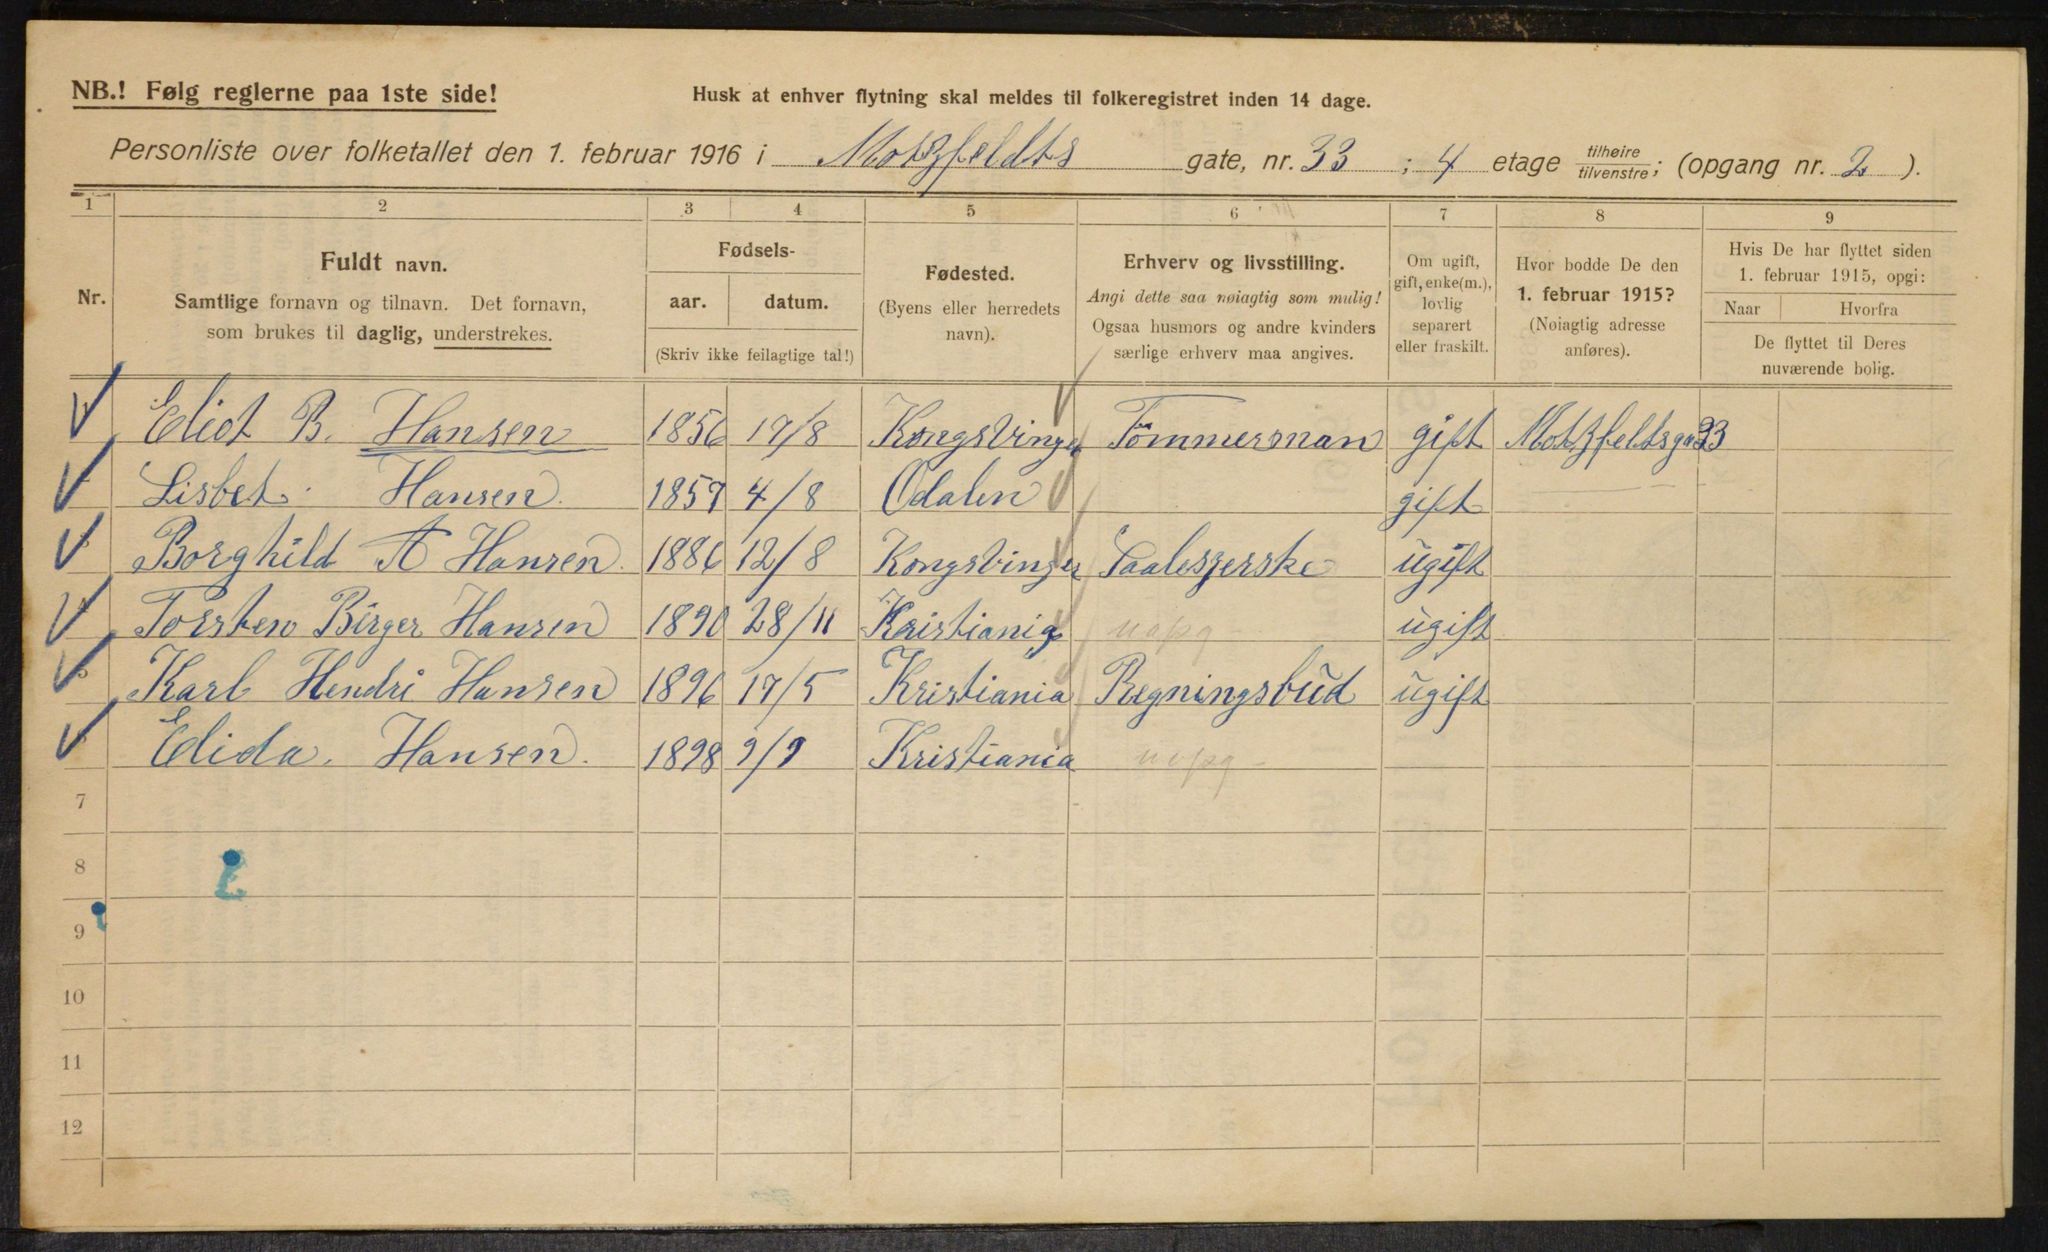 NB.! Følg reglerne paa 1ste side!
Husk at enhver flytning skal meldes til folkeregistret inden 14 dage.
Personliste over folketallet den 1. februar 1916 i Motzfeldts gate, nr. 33 ; 4 etage tilhøire/tilvenstre; (opgang nr. 2 ).
1 2 3 4 5 6 7 8 9
Nr.
Fuldt navn.
Samtlige fornavn og tilnavn. Det fornavn,
som brukes til daglig, understrekes.
Fødsels-
aar. datum.
(Skriv ikke feilagtige tal!)
Fødested.
(Byens eller herredets
navn).
Erhverv og livsstilling.
Angi dette saa nøiagtig som mulig!
Ogsaa husmors og andre kvinders
særlige erhverv maa angives.
Om ugift,
gift, enke(m.),
lovlig
separert
eller fraskilt.
Hvor bodde De den
1. februar 1915?
(Nøiagtig adresse
anføres).
Hvis De har flyttet siden
1. februar 1915, opgi:
Naar Hvorfra
De flyttet til Deres
nuværende bolig.
Eliot B. Hansen 1856 17/8 Kongsvinger Tömmerman gift Motzfeltsga 33
Lisbet Hansen 1857 4/8 Odalen gift
Borghild A Hansen 1886 12/8 Kongsvinger ugift
Torsten Birger Hansen 1890 28/11 Kristiania uopg - ugift
Karl Hendri Hansen 1896 17/5 Kristiania Regningsbud ugift
Elida. Hansen. 1898 9/9 Kristiania uopg -
7
8
9
10
11
12